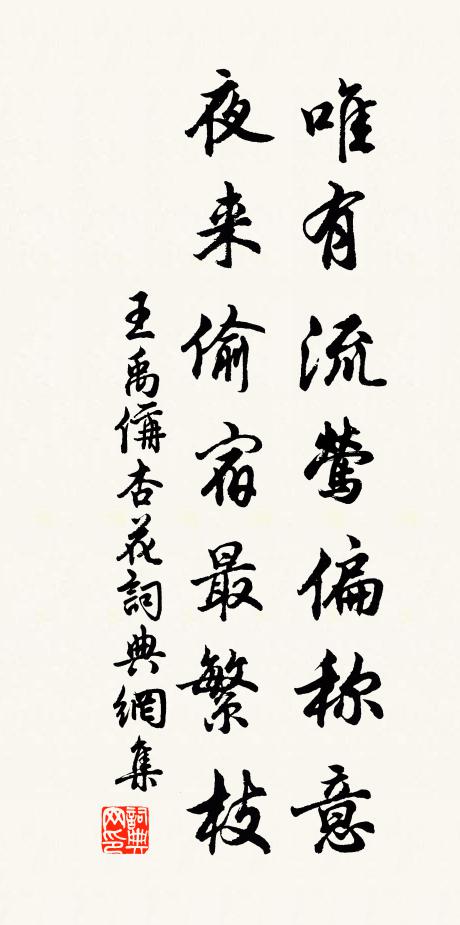 唯有流莺偏称意
夜来偷宿最繁枝
王禹偁杏花詞典網集
詞典网印